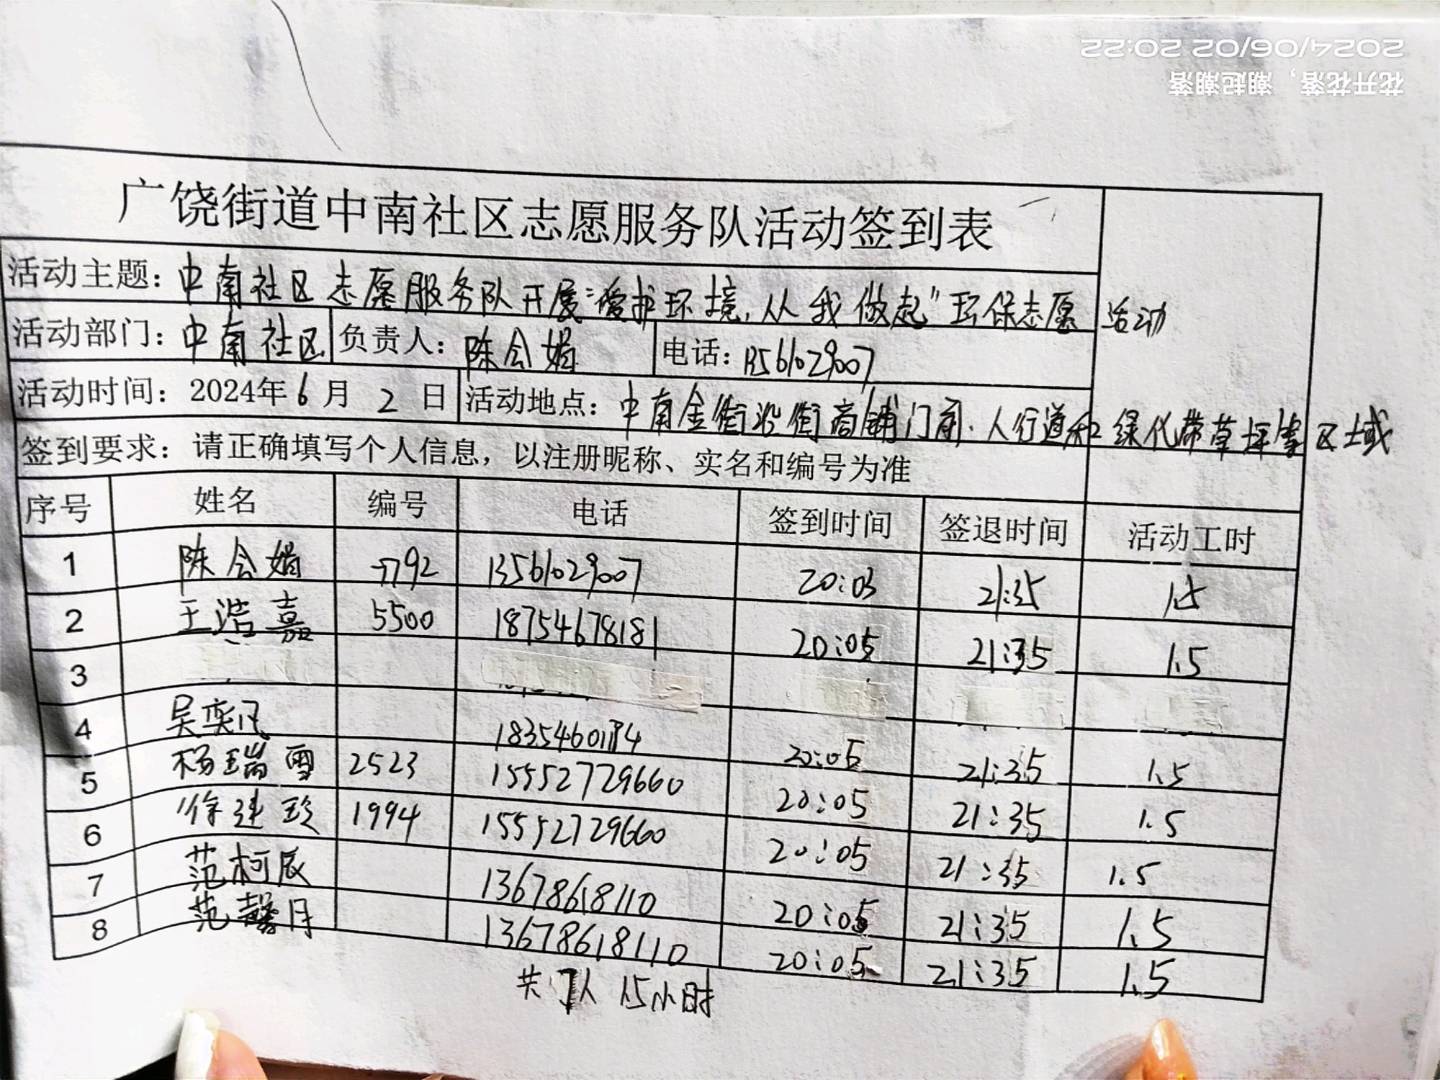 2024/06/02 20:22
花开花落，潮起潮落
广饶街道中南社区志愿服务队活动签到表
活动主题：中南社区志愿服务队开展“爱护环境，从我做起”环保志愿活动
活动部门：中南社区 负责人：陈会娟 电话：13561029007
活动时间：2024年6月2日 活动地点：中南金街沿街商铺门前、人行道和绿化带草坪等区域
签到要求：请正确填写个人信息，以注册昵称、实名和编号为准
序号 姓名 编号 电话 签到时间 签退时间 活动工时
1 陈会娟 7792 13561029007 20:03 21:35 1.5
2 王浩嘉 5500 18754678181 20:05 21:35 1.5
3
4 吴奕凡 20:05 21:35 1.5
5 杨瑞雪 2523 15552729660 20:05 21:35 1.5
6 徐建玲 1994 15552729660 20:05 21:35 1.5
7 范柯辰 13678618110 20:05 21:35 1.5
8 范馨月 13678618110 20:05 21:35 1.5
共7人 1.5小时